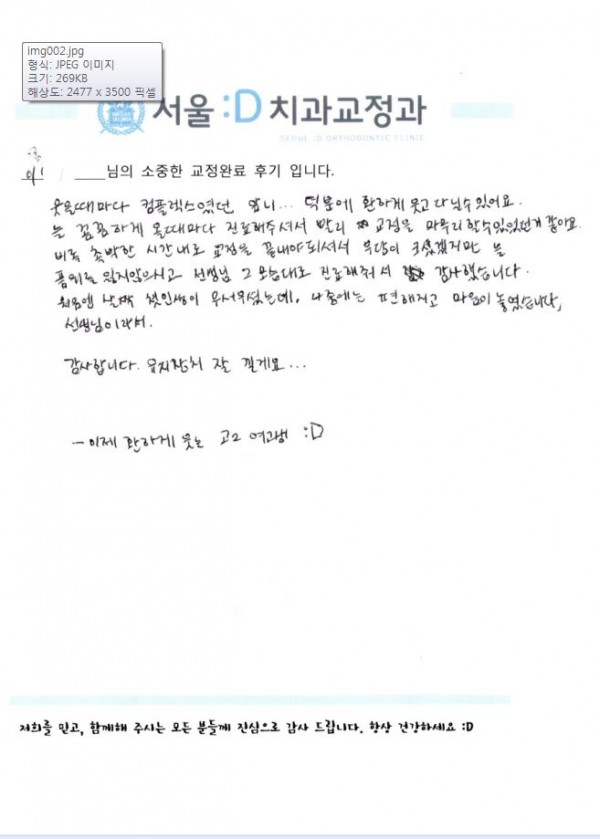 img002.jpg
형식: JPEG 이미지
크기: 269KB
해상도: 2477 x 3500 픽셀
서울 :D 치과교정과
SEOUL :D ORTHODONTIC CLINIC
님의 소중한 교정완료 후기 입니다.
웃을때마다 컴플렉스였던 앞니... 덕분에 환하게 웃고다닐수있어요.
늘 꼼꼼하게 올때마다 진료해주셔서 빨리 교정을 마무리할수있었던거 같아요.
비록 촉박한 시간내로 교정을 끝내야되셔서 부담이 크셨겠지만 늘
품위를 잃지않으시고 선생님 그 모습대로 진료해주셔서 감사했습니다.
처음엔 날짜 첫인상이 무서우셨는데, 나중에는 편해지고 마음이 놓였습니다,
선생님이라서.
감사합니다. 유지장치 잘 낄게요...
- 이제 환하게 웃는 고2 여고생 :D
저희를 믿고, 함께해 주시는 모든 분들께 진심으로 감사 드립니다. 항상 건강하세요 :D